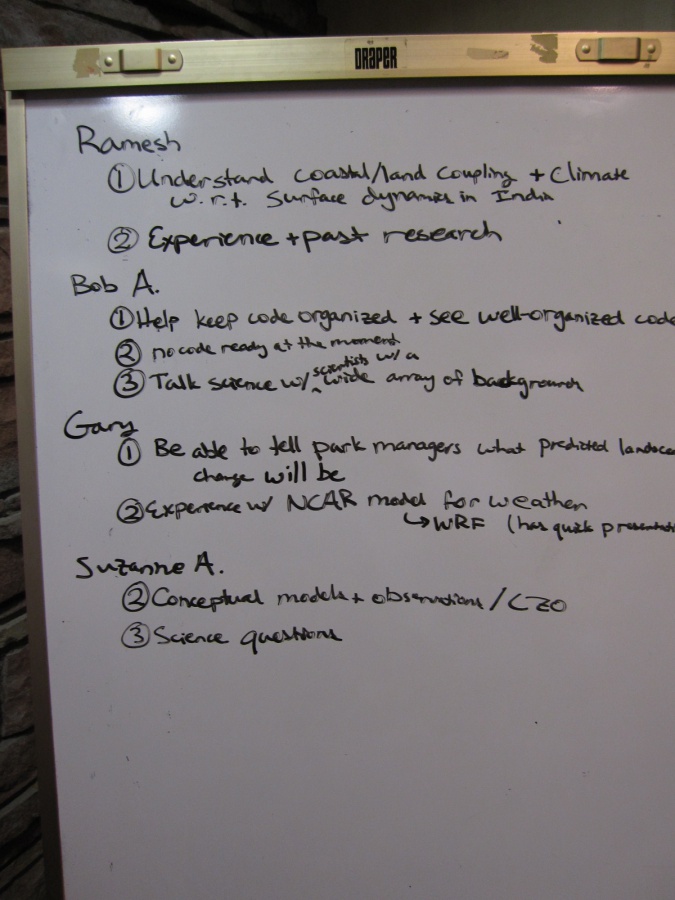 DRAPER
Ramesh
① Understand coastal/land coupling + Climate
w.r.t. surface dynamics in India
② Experience + past research
Bob A.
① Help keep code organized + see well-organized code
② no code ready at the moment
scientists w/ a
③ Talk science w/ ^ wide array of backgrounds
Gary
① Be able to tell park managers what predicted
change will be
② Experience w/ NCAR model for weather
↳ WRF (has quick
Suzanne A.
② Conceptual models + observations / CZO
③ Science questions